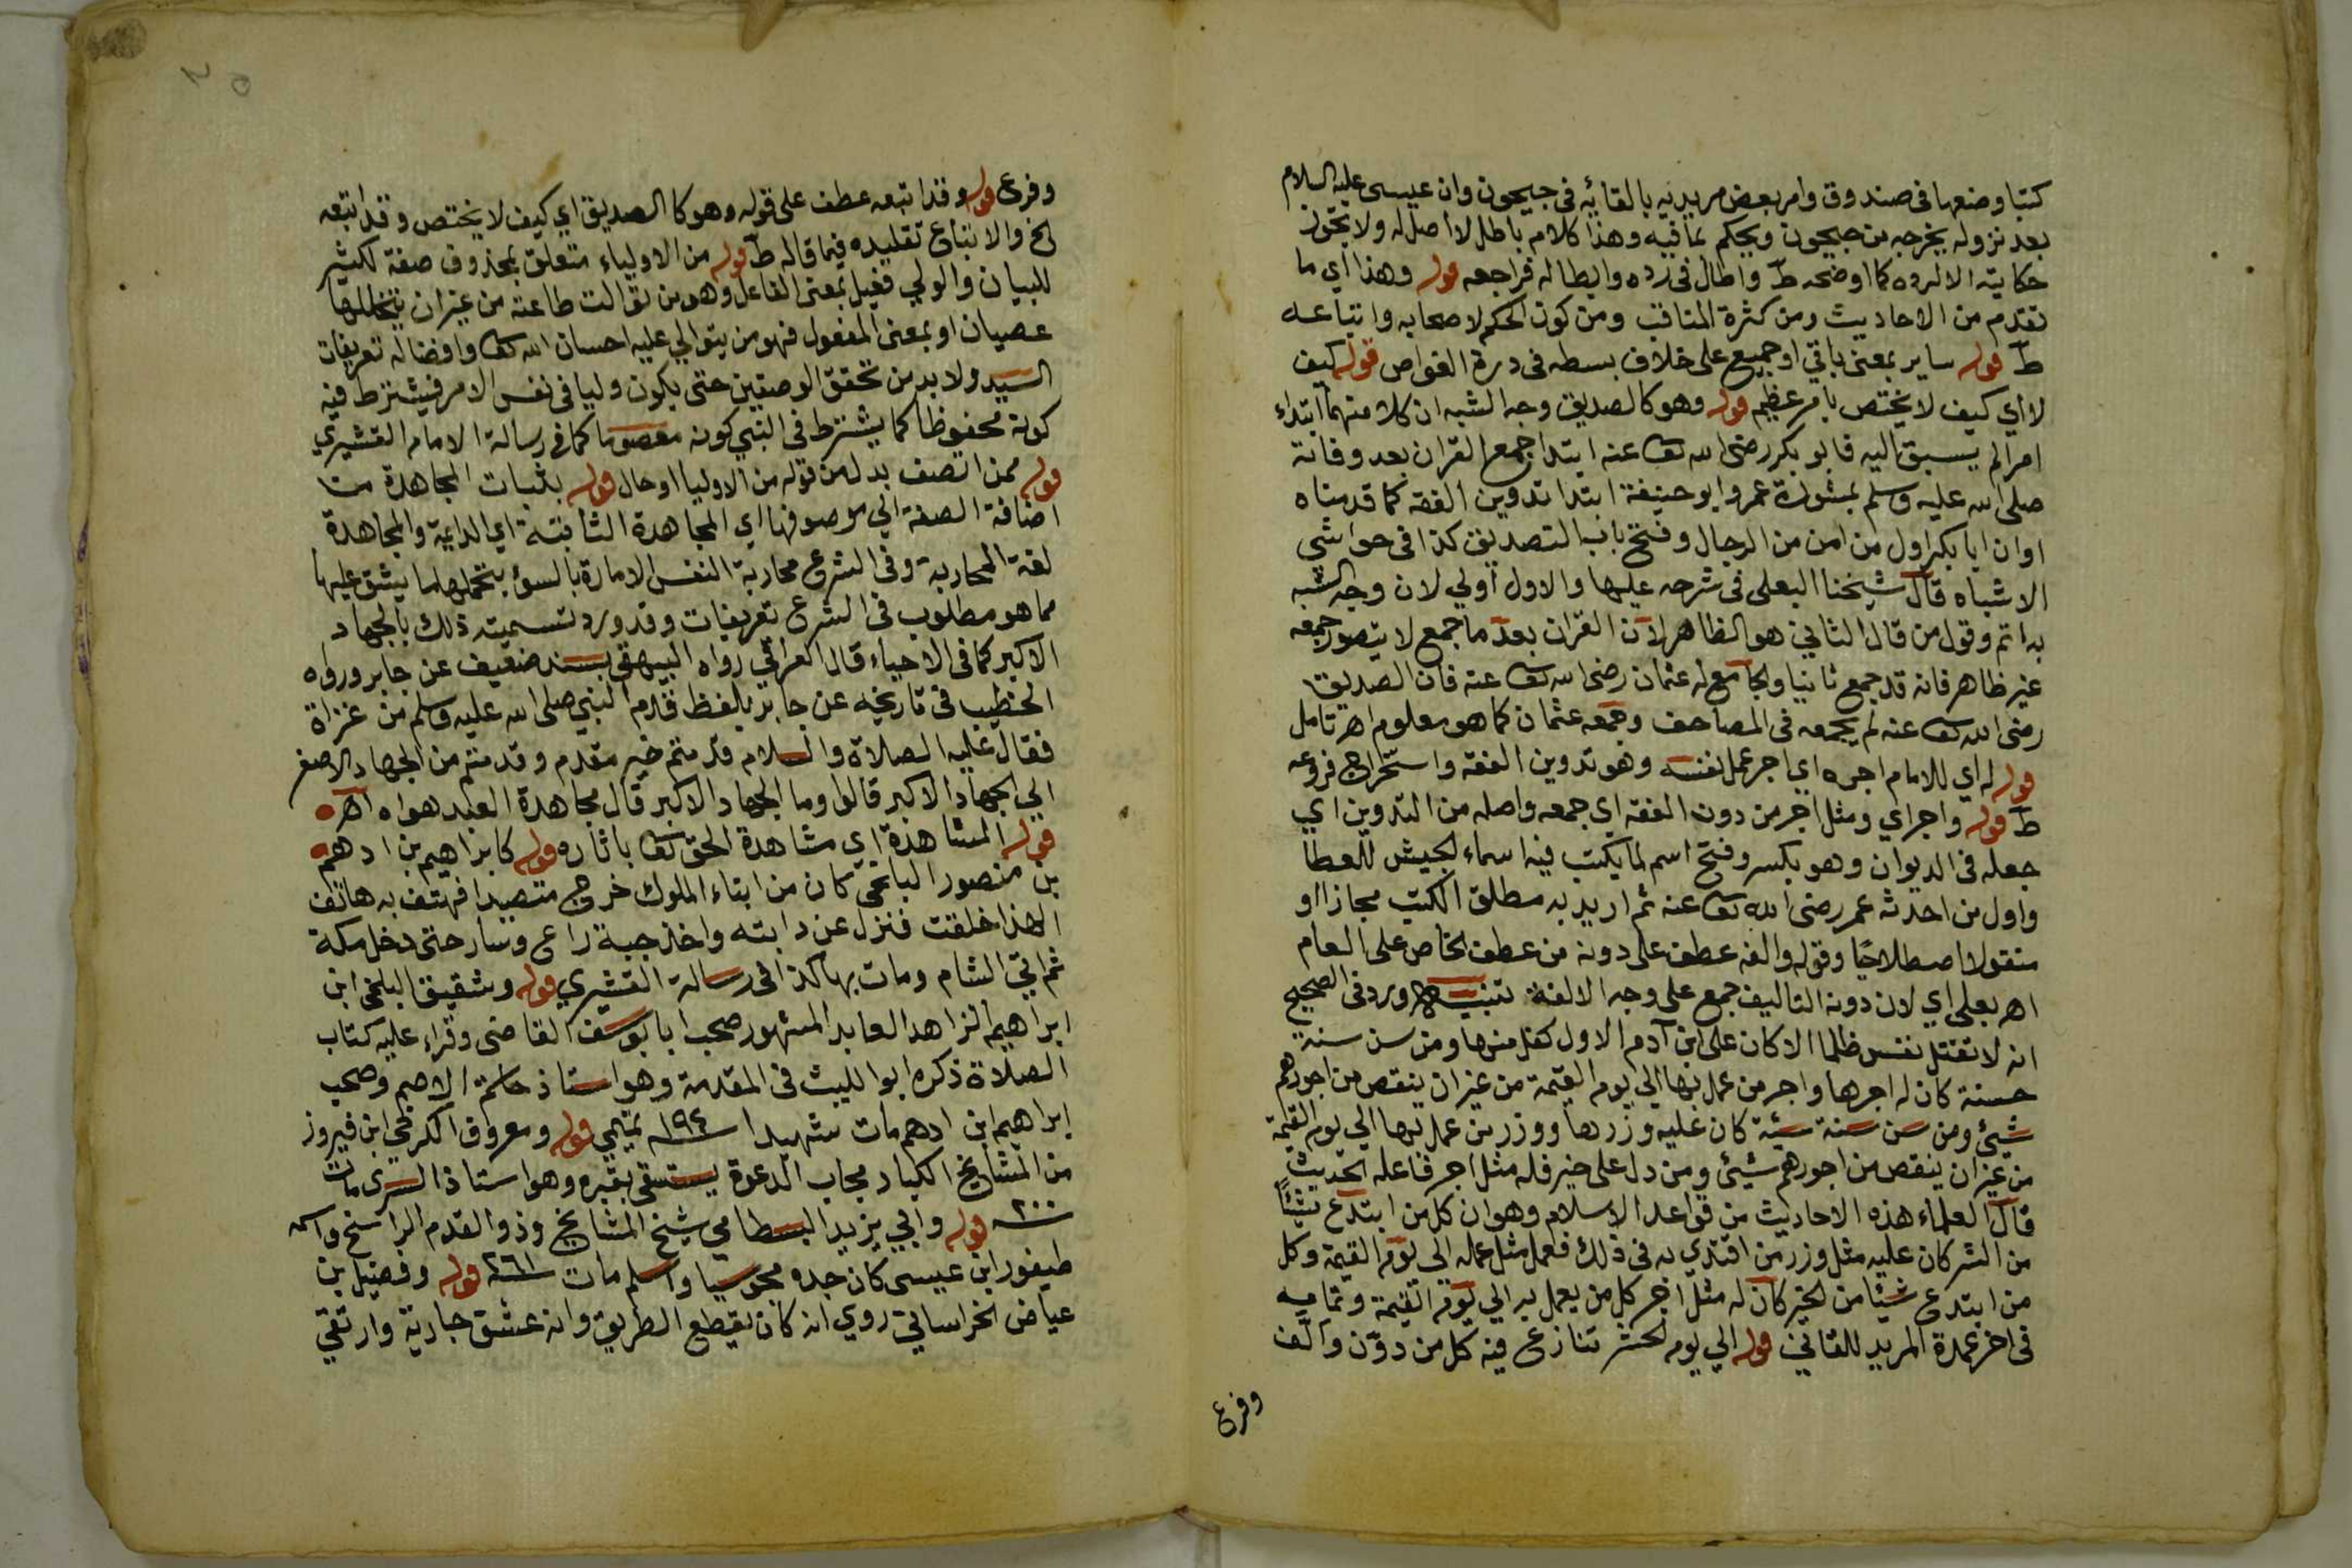 كتبا وضعها فى صندوق وامر بعض مريديه بالقائه فى جيحون وان عيسى عليه السلام
بعد نزوله يخرجه من جيحون ويحكم بما فيه وهذا كلام باطل لا اصل له ولا يجوز
حكايته الا لرده كما اوضحه ط واطال فى رده وابطاله فراجعه قوله وهذا اي ما
تقدم من الاحاديث ومن كثرة المناقب ومن كون الحكم لاصحابه واتباعه
ط قوله ساير بمعنى باقي او جميع على خلاف بسطه فى درة الغواص قوله كيف
لا اي كيف لا يختص بامر عظيم قوله وهو كالصديق وجه الشبه ان كلا منهما ابتداء
امرا لم يسبق اليه فابو بكر رضى الله تعا عنه ابتدا جمع القران بعد وفاته
صلى الله عليه وسلم بمشورة عمر وابو حنيفة ابتدا تدوين الفقه كما قدمناه
او ان ابا بكر اول من امن من الرجال وفتح باب التصديق كذا فى حواشي
الاشباه قال شيخنا البعلى فى شرحه عليها والاول اولي لان وجه الشبه
به اتم وقول من قال الثاني هو الظاهر لان القران بعد ما جمع لا يتصور جمعه
غير ظاهر فانه قد جمع ثانيا والجامع له عثمان رضى الله تعا عنه فان الصديق
رضى الله تعا عنه لم يجمعه فى المصاحف وجمعه عثمان كما هو معلوم اهـ تامل
قوله له اي للامام اجره اي اجر عمل نفسه وهو تدوين الفقه واستخراج فروعه
ط قوله واجر اي ومثل اجر من دون الفقه اي جمعه واصله من التدوين اي
جعله فى الديوان وهو بكسر وفتح اسم لما يكتب فيه اسماء الجيش للعطا
واول من احدثه عمر رضى الله تعا عنه ثم اريد به مطلق الكتب مجازا او
منقولا اصطلاحيا وقوله والفه عطف على دونه من عطف الخاص على العام
اهـ بعلى اي لان دونه التاليف جمع على وجه الالفة تنبيه ورد فى الصحيح
انه لا تقتل نفس ظلما الا كان على ابن آدم الاول كفل منها ومن سن سنة
حسنة كان له اجرها واجر من عمل بها الي يوم القيمة من غير ان ينقص من اجورهم
شيئ ومن سن سنة سيئة كان عليه وزرها ووزر من عمل بها الي يوم القيمة
من غير ان ينقص من اجورهم شيئ ومن دل على خير فله مثل اجر فاعله الحديث
قال العلماء هذه الاحاديث من قواعد الاسلام وهو ان كل من ابتدع شيئا
من الشر كان عليه مثل وزر من اقتدي به فى ذلك فعمل مثل عمله الى يوم القيمة وكل
من ابتدع شيئا من الخير كان له مثل اجر كل من يعمل به الي يوم القيمة وتمامه
فى اخر عمدة المريد للقاني قوله الي يوم الحشر تنازع فيه كل من دون والف
وفرع
وفرع قوله وقد اتبعه عطف على قوله وهو كالصديق اي كيف لا يختص وقد اتبعه
الخ والاتباع تقليده فيما قاله ط قوله من الاولياء متعلق بمحذوف صفة لكثير
للبيان والولي فعيل بمعنى الفاعل وهو من توالت طاعته من غير ان يتخللها
عصيان او بمعنى المفعول فهو من يتوالي عليه احسان الله تعا وافضاله تعريفات
السيد ولا بد من تحقق الوصفين حتى يكون وليا فى نفس الامر فيشترط فيه
كونه محفوظا كما يشترط فى النبي كونه معصوما كما فى رسالة الامام القشيري
قوله ممن اتصف بدل من قوله من الاوليا او حال قوله بثبات المجاهدة من
اضافة الصفة الي موصوفها اي المجاهدة الثابتة اي الدايمة والمجاهدة
لغة المحاربة وفى الشرع محاربة النفس الامارة بالسوء بتحملها ما يشق عليها
مما هو مطلوب فى الشرع تعريفات وقد ورد تسميته ذلك بالجهاد
الاكبر كما فى الاحياء قال العراقي رواه البيهقي بسند ضعيف عن جابر ورواه
الخطيب فى تاريخه عن جابر بلفظ قدم النبي صلى الله عليه وسلم من غزاة
فقال عليه الصلاة والسلام قدمتم خير مقدم وقدمتم من الجهاد الاصغر
الي الجهاد الاكبر قالوا وما الجهاد الاكبر قال مجاهدة العبد هواه اهـ
قوله المشاهدة اي مشاهدة الحق تعا باثاره قوله كابراهيم بن ادهم
بن منصور البلخي كان من ابناء الملوك خرج متصيدا فهتف به هاتف
الهذا خلقت فنزل عن دابته واخذ جبة راع وسار حتى دخل مكة
ثم اتي الشام ومات بها كذا فى رسالة القشيري قوله وشقيق البلخي ابن
ابراهيم الزاهد العابد المشهور صحب ابا يوسف القاضى وقراء عليه كتاب
الصلاة ذكره ابو الليث فى المقدمة وهو استاذ حاتم الاصم وصحب
ابراهيم ابن ادهم مات شهيدا سنة ١٩٤ تميمي قوله ومعروف الكرخي ابن فيروز
من المشايخ الكبار مجاب الدعوة يستسقى بقبره وهو استاذ السرى مات
سنة ٢٠٠ قوله وابي يزيد البسطامي شيخ المشايخ وذو القدم الراسخ واسمه
طيفور ابن عيسى كان جده مجوسيا واسلم مات سنة ٢٦١ قوله وفضيل بن
عياض الخراساني روي انه كان يقطع الطريق وانه عشق جارية وارتقي